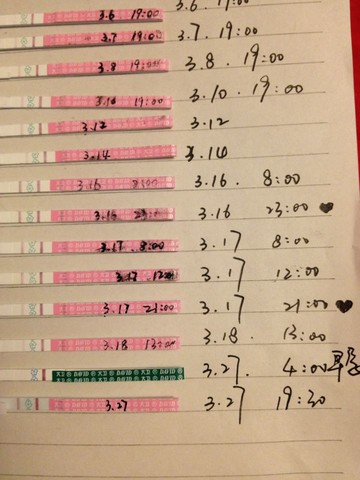 3.6 19:00 3.6 . 19:00
3.7 19:00 3.7 . 19:00
3.8 19:00 3.8 . 19:00
3.10 19:00 3.10 . 19:00
3.12 3.12
3.14 3.14
3.16 8:00 3.16 . 8:00
3.16 23:00 3.16 23:00
3.17 8:00 3.17 8:00
3.17 12:00 3.17 12:00
3.17 21:00 3.17 21:00
3.18 13:00 3.18 . 13:00
3.27 . 4:00 早孕
3.27 3.27 19:30